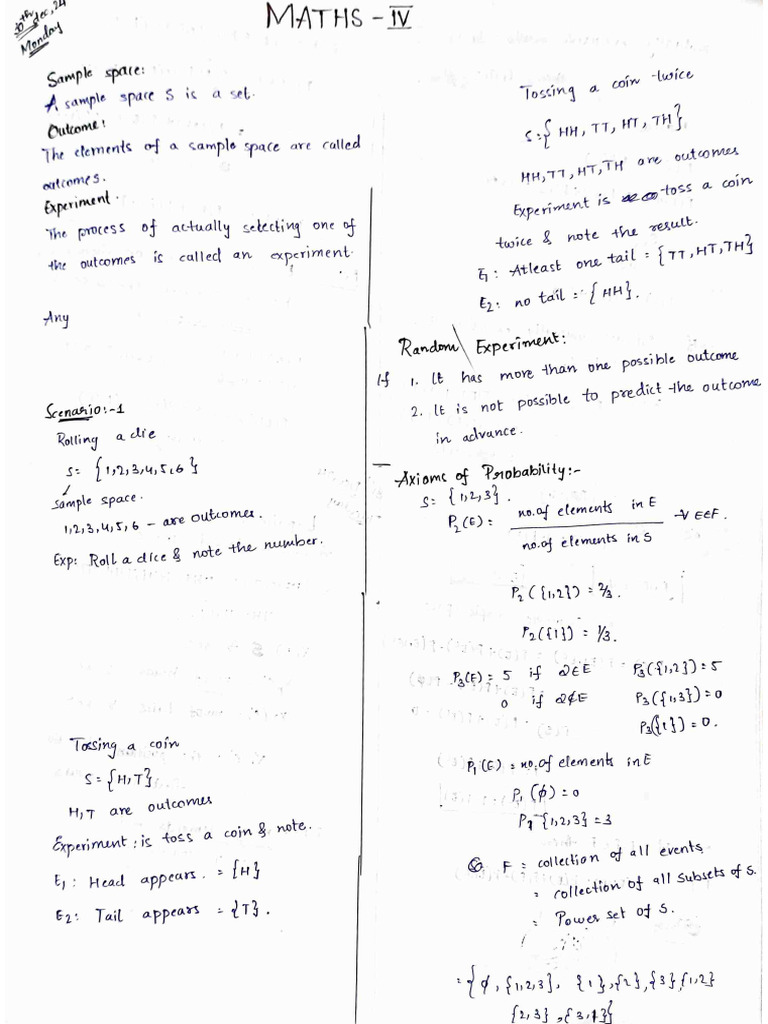 30th dec, 24
Monday
MATHS - IV
Sample space:
A sample space S is a set.
Outcome:
The elements of a sample space are called
outcomes.
Experiment.
The process of actually selecting one of
the outcomes is called an experiment.
Any
Scenario:-1
Rolling a die
S= {1,2,3,4,5,6}
Sample space.
1,2,3,4,5,6 - are outcomes.
Exp: Roll a dice & note the number.
Tossing a coin
S={H,T}
H,T are outcomes
Experiment: is toss a coin & note.
E1: Head appears. = {H}
E2: Tail appears = {T}.
Tossing a coin twice
S={HH, TT, HT, TH}
HH,TT,HT,TH are outcomes
Experiment is toss a coin
twice & note the result.
E1: Atleast one tail = {TT,HT,TH}
E2: no tail = {HH}.
Random Experiment:
If 1. It has more than one possible outcome
2. It is not possible to predict the outcome
in advance.
- Axioms of Probability:-
S= {1,2,3}.
P2(E)= no.of elements in E ∀ E∈F.
no.of elements in S
P2({1,2})=2/3.
P2({1})=1/3.
P3(E)= 5 if 2∈E P3({1,2})=5
0 if 2∉E P3({1,3})=0
P3({1})=0.
P1(E)=no.of elements in E
P1(ϕ)=0
P1{1,2,3}=3
F = collection of all events
= collection of all subsets of S.
= Power set of S.
={ϕ,{1,2,3}, {1},{2},{3}{1,2}
{2,3},{3,1}}